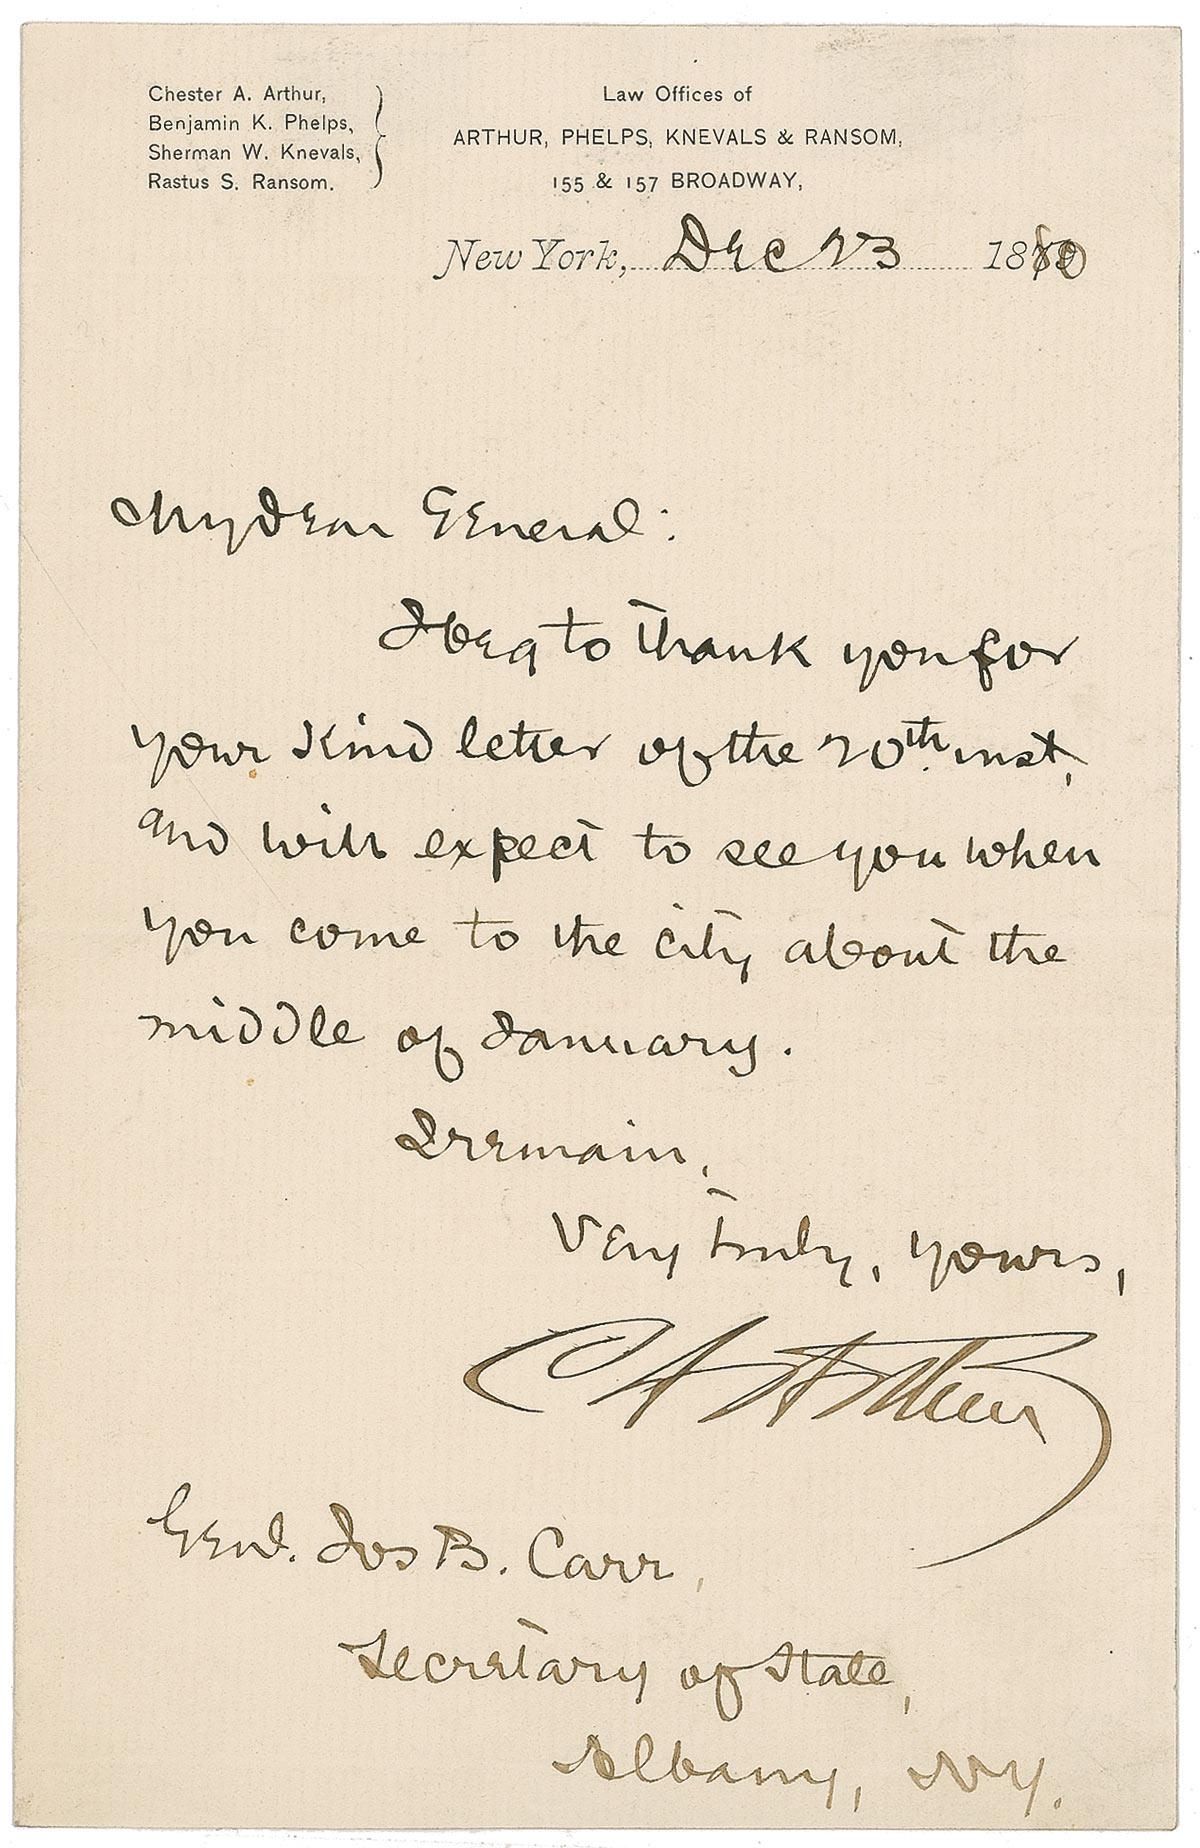 Chester A. Arthur,
Benjamin K. Phelps,
Sherman W. Knevals,
Rastus S. Ransom.
Law Offices of
ARTHUR, PHELPS, KNEVALS & RANSOM,
155 & 157 BROADWAY,
New York, Dec 23 1880
My dear General:
I beg to thank you for
your kind letter of the 20th. inst,
and will expect to see you when
you come to the city about the
middle of January.
I remain,
Very truly, yours,
C A Arthur
Genl. Jos B. Carr,
Secretary of State,
Albany, NY.